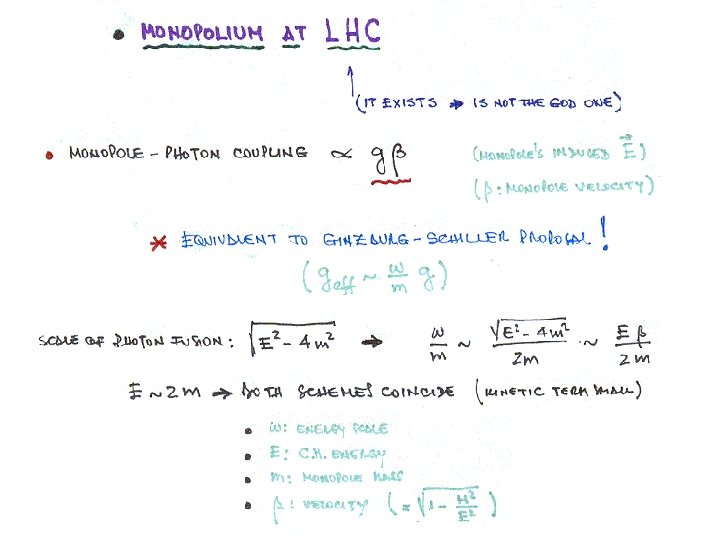 • MONOPOLIUM AT LHC
(IT EXISTS → IS NOT THE GOD ONE)
• MONOPOLE - PHOTON COUPLING ∝ gβ (MONOPOLE'S INDUCED E⃗)
(β: MONOPOLE VELOCITY)
* EQUIVALENT TO GINZBURG - SCHILLER PROPOSAL!
(g_eff ~ ω/m g)
SCALE OF PHOTON FUSION: √(E² - 4m²) → ω/m ~ √(E² - 4m²)/2m ~ Eβ/2m
E ~ 2m → BOTH SCHEMES COINCIDE (KINETIC TERM SMALL)
• ω: ENERGY SCALE
• E: C.M. ENERGY
• m: MONOPOLE MASS
• β: VELOCITY (= √(1 - M²/E²))